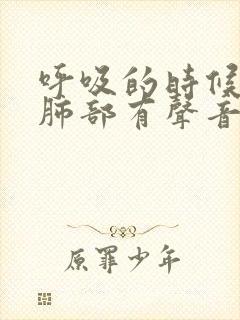 呼吸的時候
肺部有聲音
原罪少年